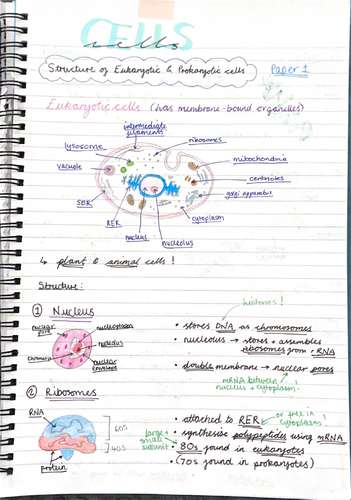 CELLS
cells
Structure of Eukaryotic & Prokaryotic cells
Paper 1
Eukaryotic cells (has membrane-bound organelles)
intermediate filaments
lysosome
ribosomes
vacuole
mitochondria
centrioles
SER
golgi apparatus
RER
cytoplasm
nucleus
nucleolus
↳ plant & animal cells!
Structure:
histones!
① Nucleus
nuclear pore
nucleoplasm
nucleolus
chromatin
nuclear envelope
• stores DNA as chromosomes
• nucleolus → stores + assembles
ribosomes from rRNA
• double membrane → nuclear pores
mRNA between
nucleus + cytoplasm!
② Ribosomes
RNA
60S
40S
protein
• attached to RER
or free in
cytoplasm!
• synthesise polypeptides using mRNA
large +
small
subunit
• 80s found in eukaryotes
• (70s found in prokaryotes)